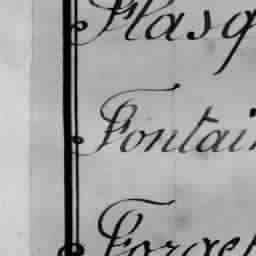 Flasq
Fontain
Forget